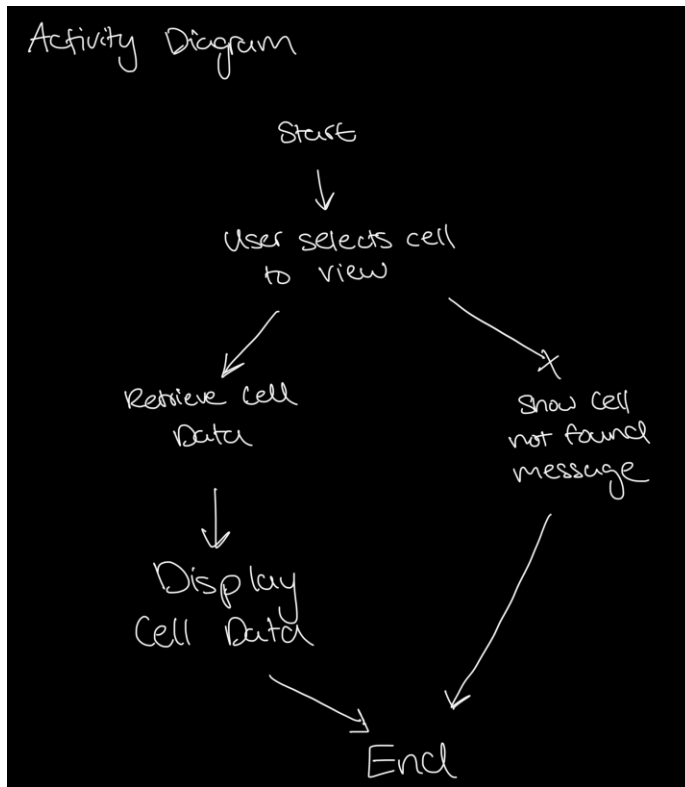 Activity Diagram
Start
User selects cell
to view
Retrieve Cell
Data
Show Cell
not found
message
Display
Cell Data
End